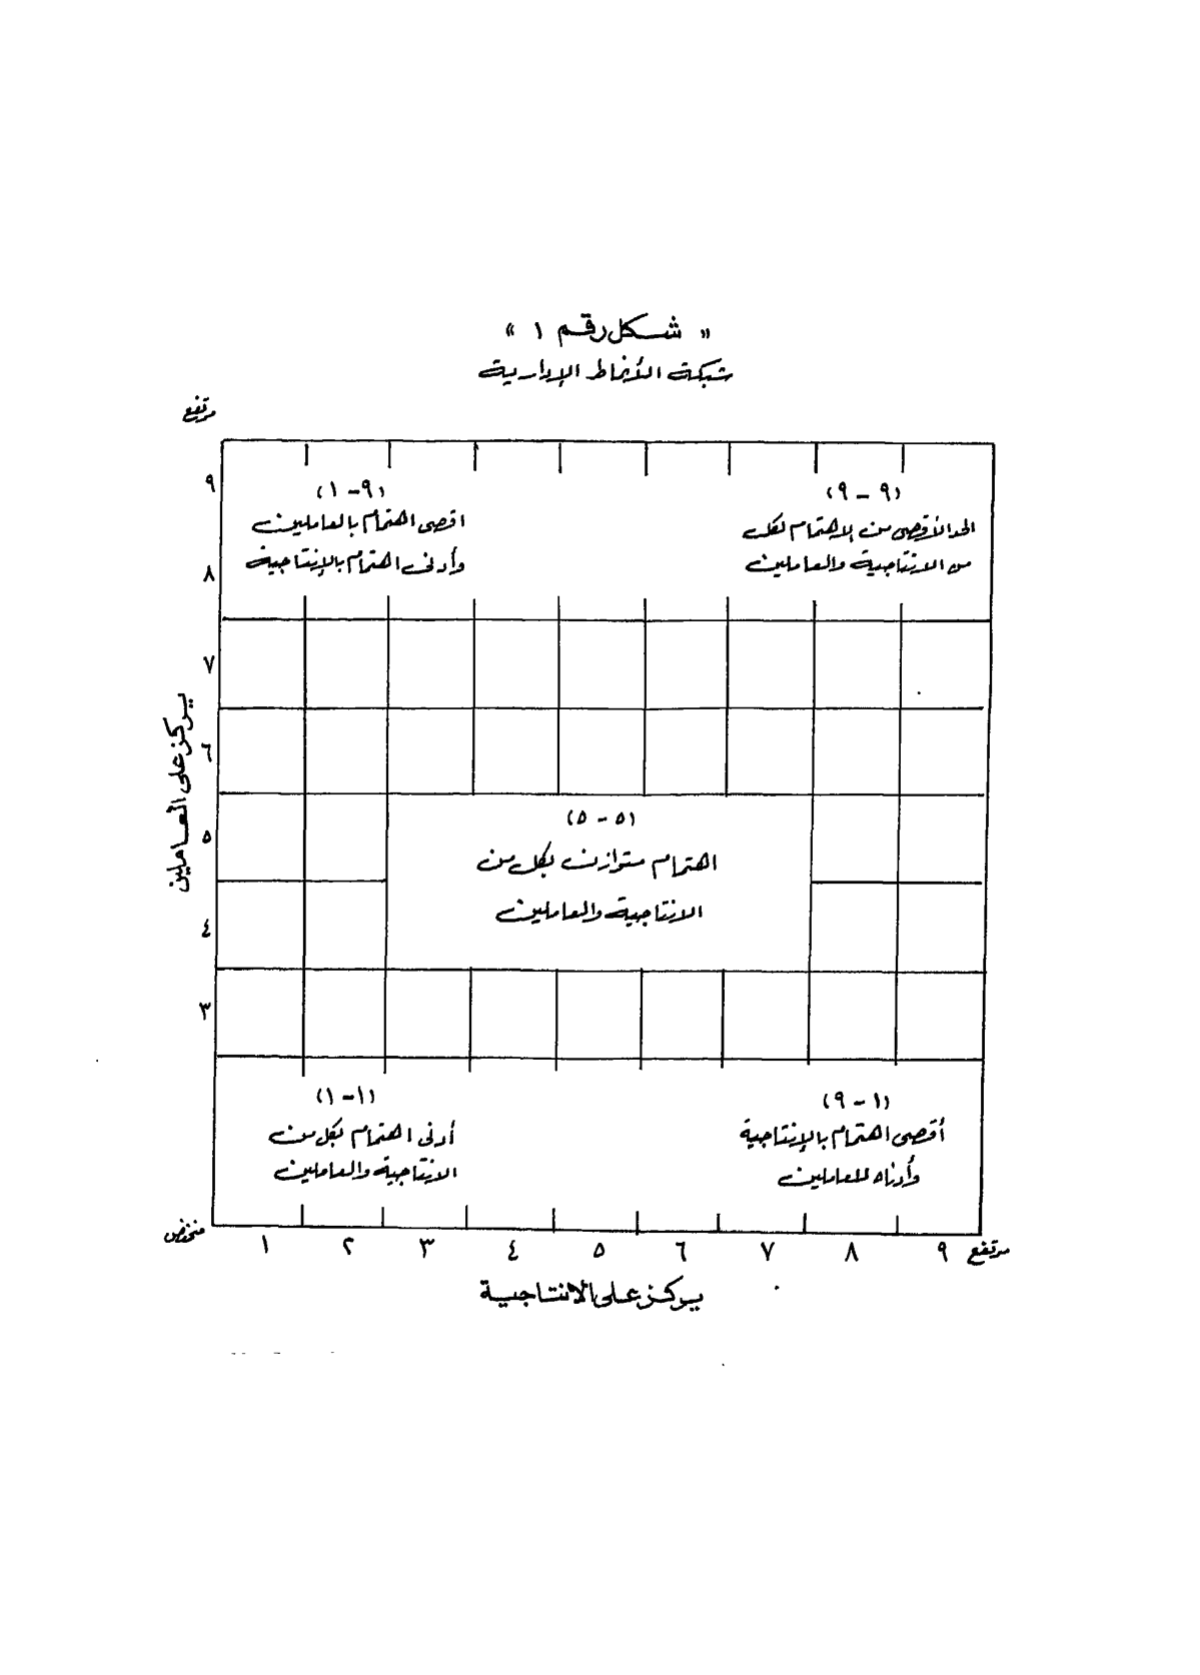 « شكل رقم ١ »
شبكة الأنماط الإدارية
مرتفع
٩
(٩-١)
اقصى اهتمام بالعاملين
وأدنى اهتمام بالإنتاجية
(٩-٩)
الحد الأقصى من الاهتمام لكل
من الانتاجية والعاملين
٨
٧
٦
يركز على العاملين
(٥-٥)
اهتمام متوازن بكل من
الانتاجية والعاملين
٥
٤
٣
(١-١)
أدنى اهتمام بكل من
الانتاجية والعاملين
(١-٩)
أقصى اهتمام بالإنتاجية
وأدناه للعاملين
منخفض ١ ٢ ٣ ٤ ٥ ٦ ٧ ٨ ٩ مرتفع
يركز على الانتاجية